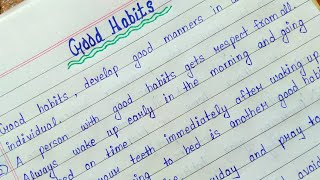 Good Habits
Good habits, develop good manners in a
individual.
A person with good habits gets respect from all.
Always wake up early in the morning and going
bed on time.
your teeth immediately after waking up
going to bed is another good hab
ryday and pray to
avoid